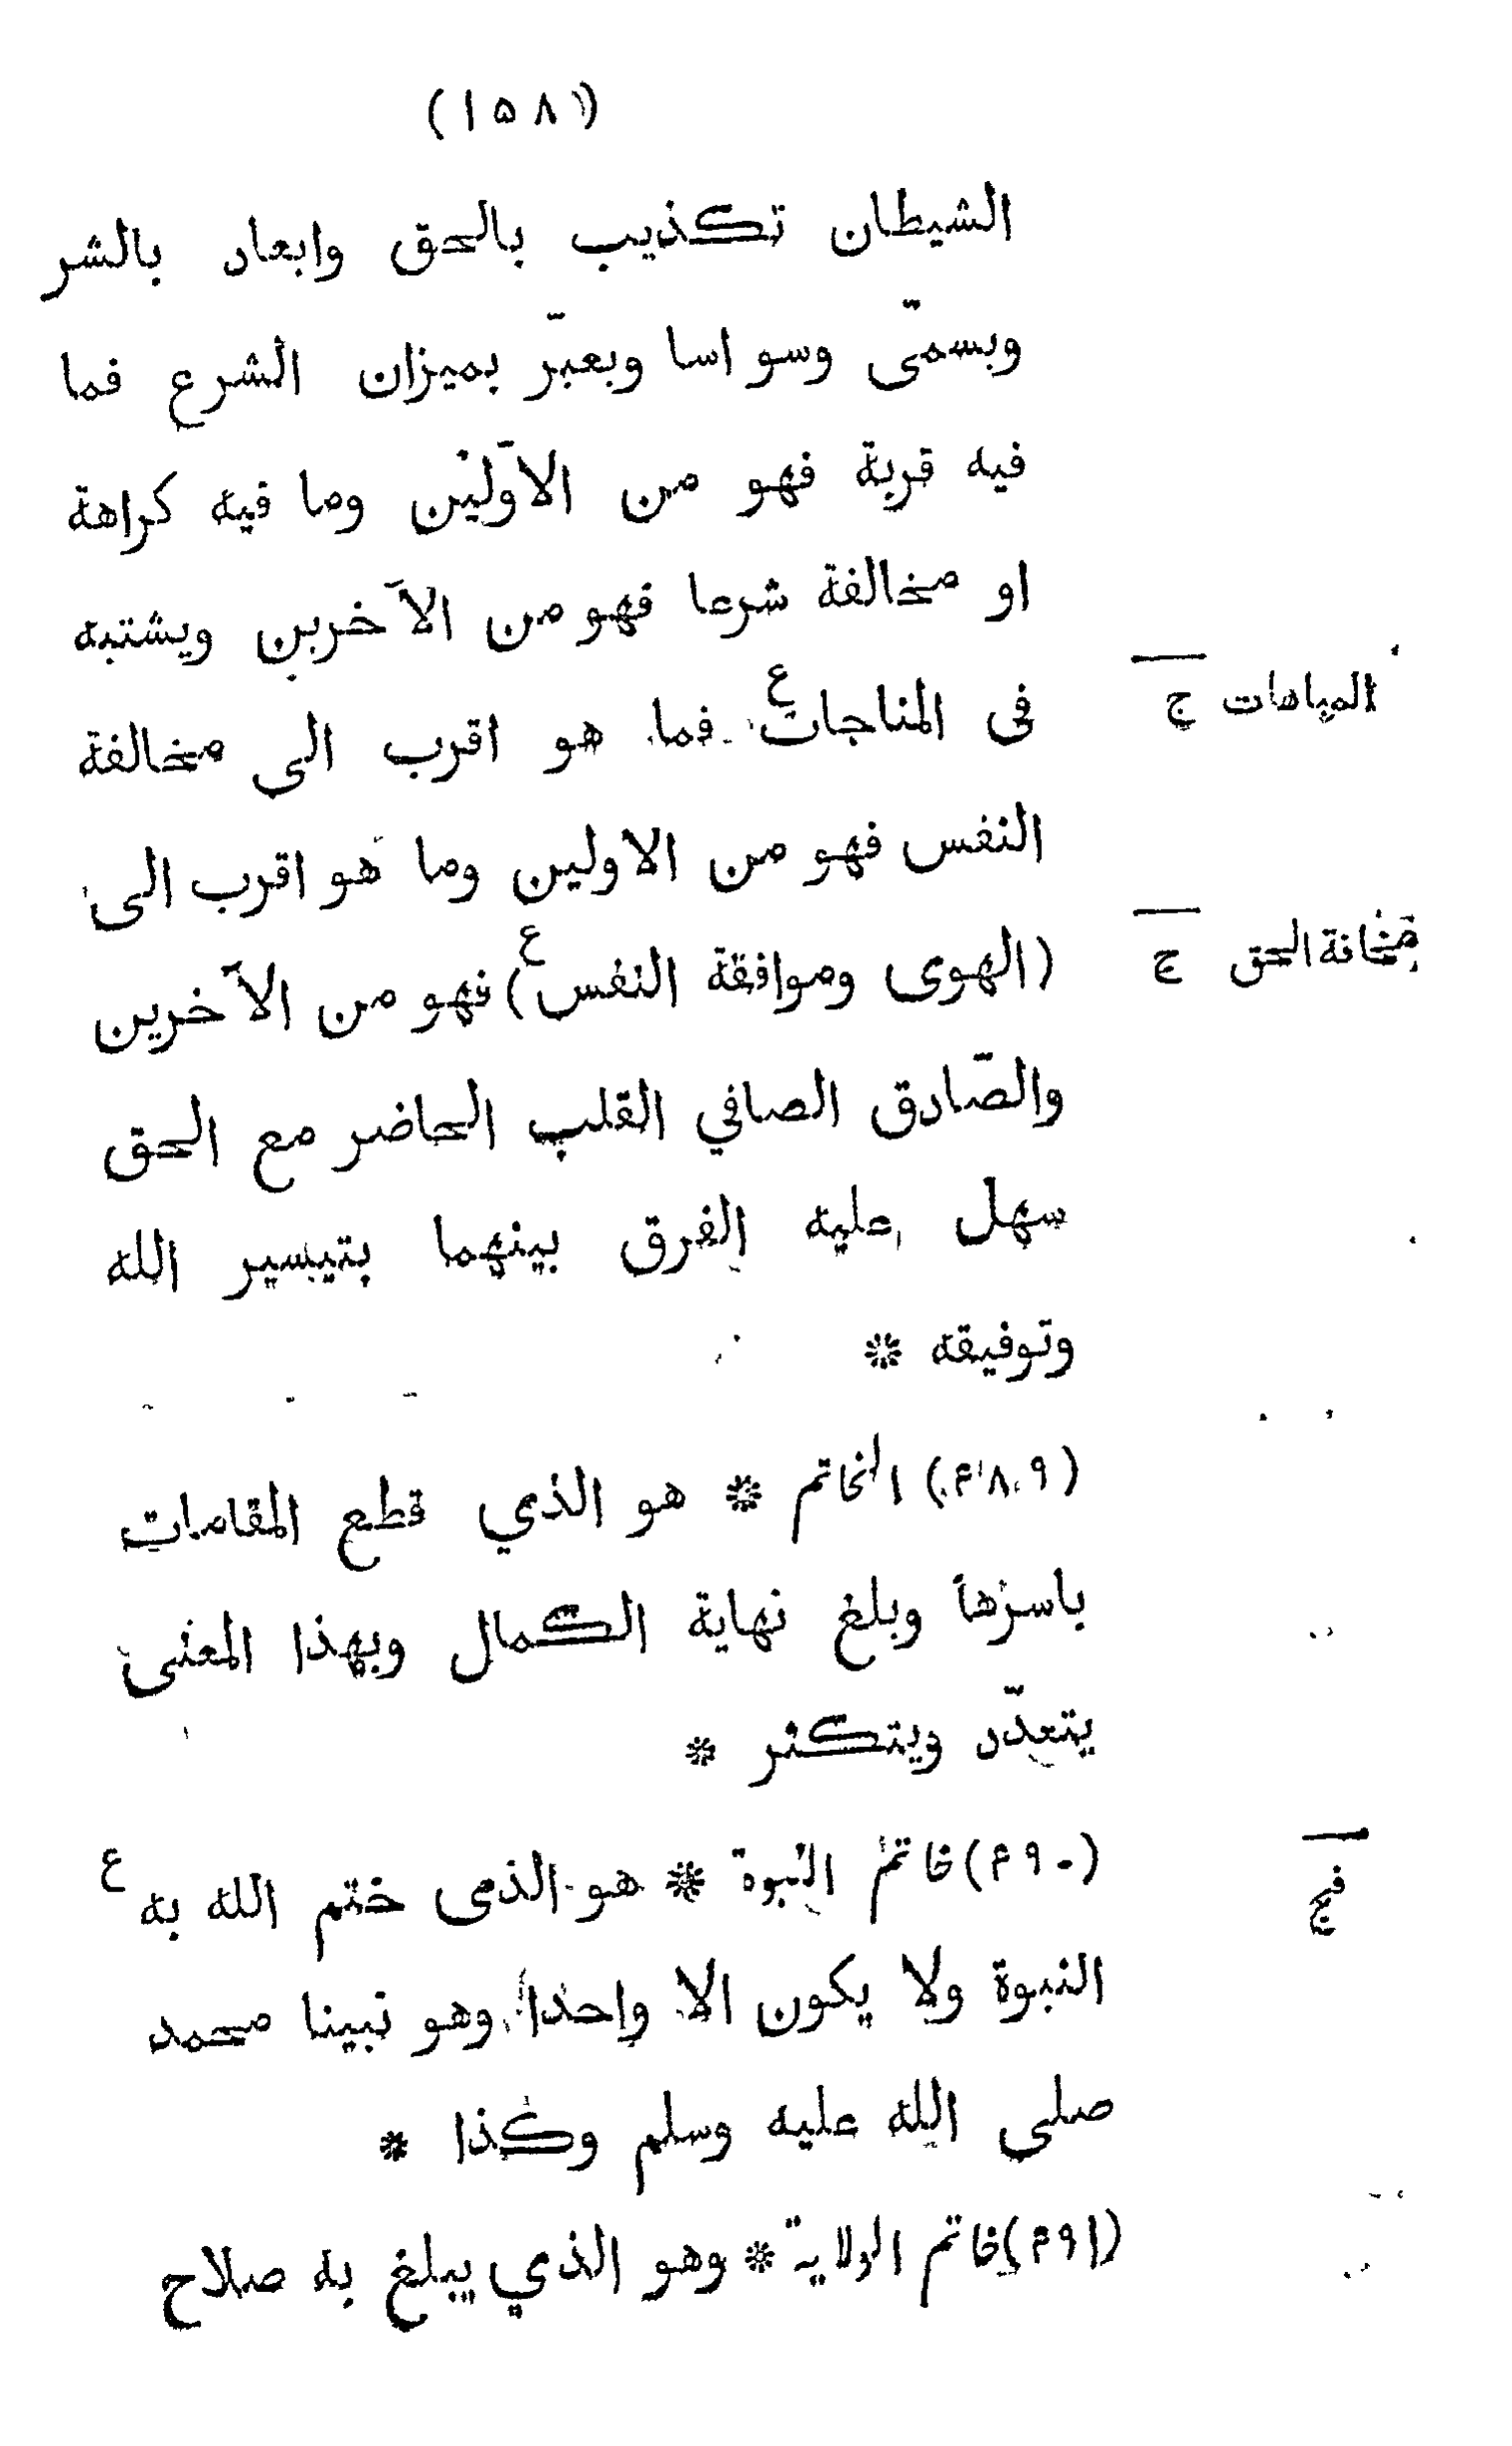 (١٥٨)
الشيطان تكذيب بالحق وابعاد بالشر
ويسمّى وسواسا ويعبّر بميزان الشرع فما
فيه قربة فهو من الاوّلين وما فيه كراهة
او مخالفة شرعا فهو من الآخرين ويشتبه
فى المناجات ع فما هو اقرب الى مخالفة
المباهات ج
النفس فهو من الاولين وما هو اقرب الى
(الهوى وموافقة النفس ع) فهو من الآخرين
الحق ج
والصّادق الصافي القلب الحاضر مع الحق
سهل عليه الفرق بينهما بتيسير الله
وتوفيقه *
(٤٨٩) الخاتم * هو الذي قطع المقامات
باسرها وبلغ نهاية الكمال وبهذا المعنى
يتعدّد ويتكثر *
(٤٩٠) خاتم النبوة * هو الذى ختم الله به ع
فج
النبوة ولا يكون الا واحدا وهو نبينا محمد
صلى الله عليه وسلم وكذا *
(٤٩١) خاتم الولاية * وهو الذي يبلغ به صلاح